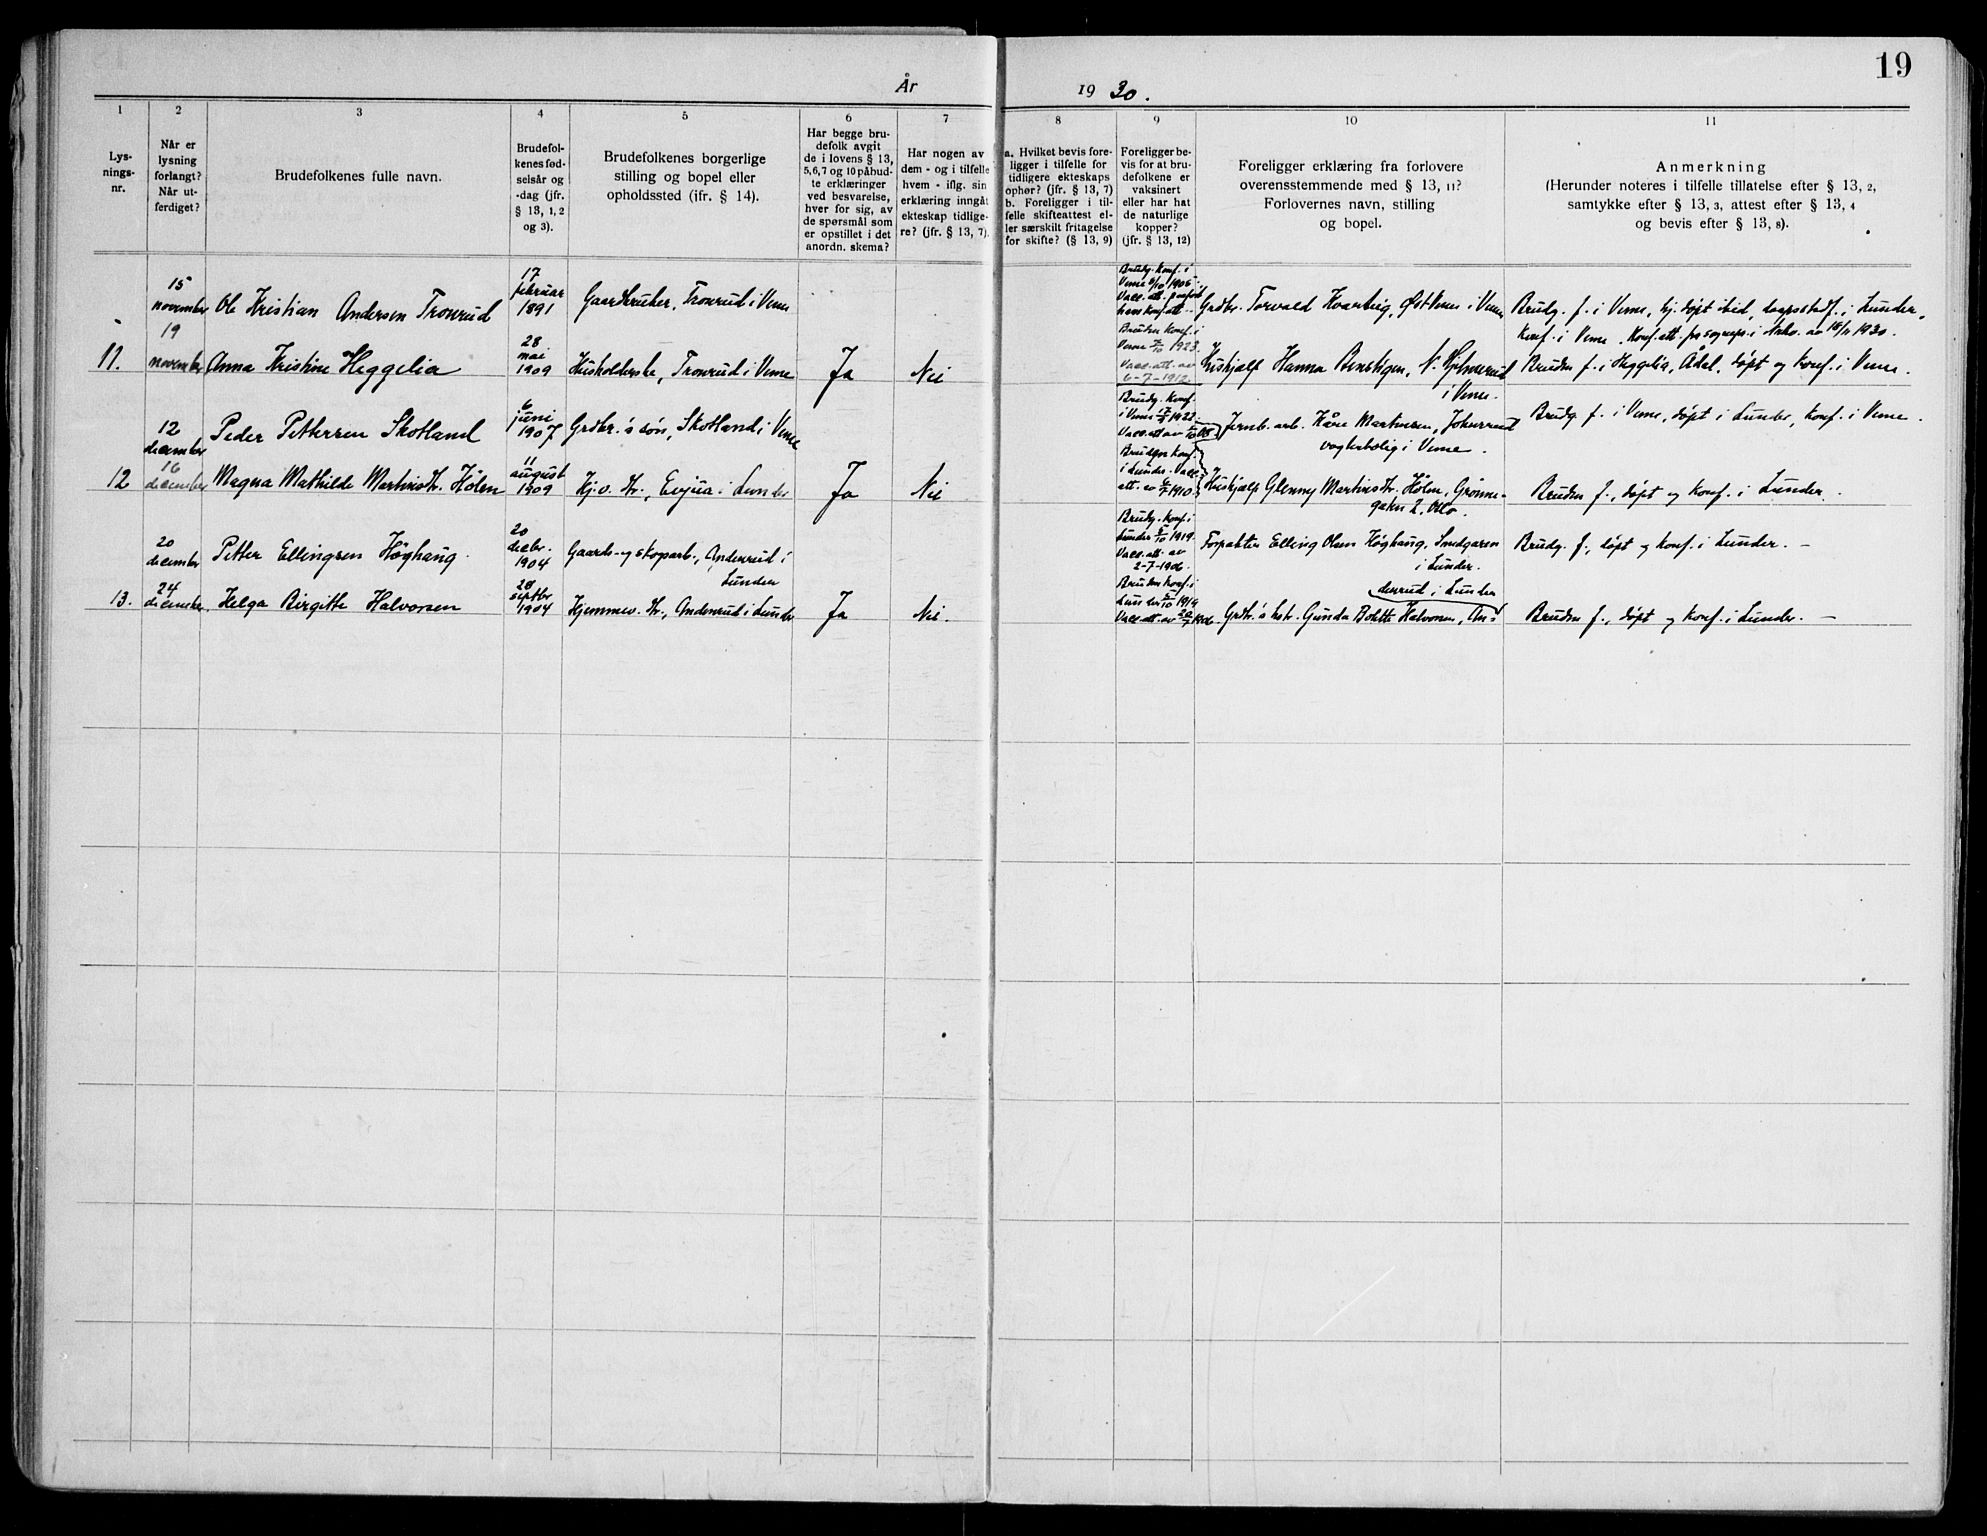 19
År 1930.
1
2
3
4
5
6
7
8
9
10
11
Lys-
nings-
nr.
Når er
lysning
forlangt?
Når ut-
ferdiget?
Brudefolkenes fulle navn.
Brudefol-
kenes fød-
selsår og
-dag (jfr.
§ 13, 1, 2
og 3).
Brudefolkenes borgerlige
stilling og bopel eller
opholdssted (ifr. § 14).
Har begge bru-
defolk avgit
de i lovens § 13,
5,6,7 og 10 påbud-
te erklæringer
ved besvarelse,
hver for sig, av
de spørsmål som
er opstillet i det
anordn. skema?
Har nogen av
dem - og i tilfelle
hvem - iflg. sin
erklæring inngåt
ekteskap tidlige-
re? (jfr. § 13, 7).
a. Hvilket bevis fore-
ligger i tilfelle for
tidligere ekteskaps
ophør? (jfr. § 13, 7)
b. Foreligger i til-
felle skifteattest el-
ler særskilt fritagelse
for skifte? (§ 13, 9)
Foreligger be-
vis for at bru-
defolkene er
vaksinert
eller har hat
de naturlige
kopper?
(jfr. § 13, 12)
Foreligger erklæring fra forlovere
overensstemmende med § 13, 11?
Forlovernes navn, stilling
og bopel.
Anmerkning
(Herunder noteres i tilfelle tillatelse efter § 13, 2,
samtykke efter § 13, 3, attest efter § 13, 4
og bevis efter § 13, 8).
15
november
Ole Kristian Andersen Tronrud
17
februar
1891
Gaardbruker, Tronrud i Veme
Brudg. konf. i
Veme 8/10 1905.
Vacc. att. paaført
hans konf. att.
Grdbr. Torvald Kvarberg, Øst Veme i Veme
Brudg. f. i Veme, hj. døpt ibid, daapsstadf. i Lunder,
konf. i Veme. Konf. att. fra sognepr. i Norderhov av 18/11 1930.
11.
19
november
Anna Kristine Heggelia
28
mai
1909
Husholderske, Tronrud i Veme
Ja
Nei
Bruden konf. i
Veme 7/10 1923.
Vacc. att. av
6-7-1912.
Hushjælp Hanna Benstigen, N. Hjelmerud
i Veme.
Bruden f. i Heggelia, Ådal, døpt og konf. i Veme.
12
december
Peder Pettersen Skotland
6
juni
1907
Grdbr.'s søn, Skotland i Veme
Brudg. konf.
i Veme 1922.
Vacc. att. av
Jernb. arb. Kåre Martinsen, Johnsrud
vogterbolig i Veme.
Brudg. f. i Veme, døpt i Lunder, konf. i Veme.
12
16
december
Magna Mathilde Martinsdtr. Hølen
11
august
1909
Hj.v. dtr., Evjua i Lunder
Ja
Nei
Bruden konf.
i Lunder. Vacc.
att. av 1910.
Hushjælp Glenny Martinsdtr. Hølen, Grønne-
gaten 2, Oslo.
Bruden f., døpt og konf. i Lunder.
20
december
Petter Ellingsen Høghaug.
20
decbr.
1904
Gaards- og skogarb., Anderrud i
Lunder
Brudg. konf. i
Lunder 5/10 1919.
Vacc. att. av
2-7-1906.
Forpakter Elling Olsen Høghaug, Smedgaren
i Lunder.
Brudg. f., døpt og konf. i Lunder. —
13.
24
december.
Helga Birgitte Halvorsen
28
septbr
1904
Hjemmev. dtr., Anderrud i Lunder
Ja
Nei.
Bruden konf. i
Lunder 5/10 1919
Vacc. att. av 20/7 1906.
Grdbr.'s hstr. Gunda Bolette Halvorsen, An-
derrud i Lunder
Bruden f., døpt og konf. i Lunder. —